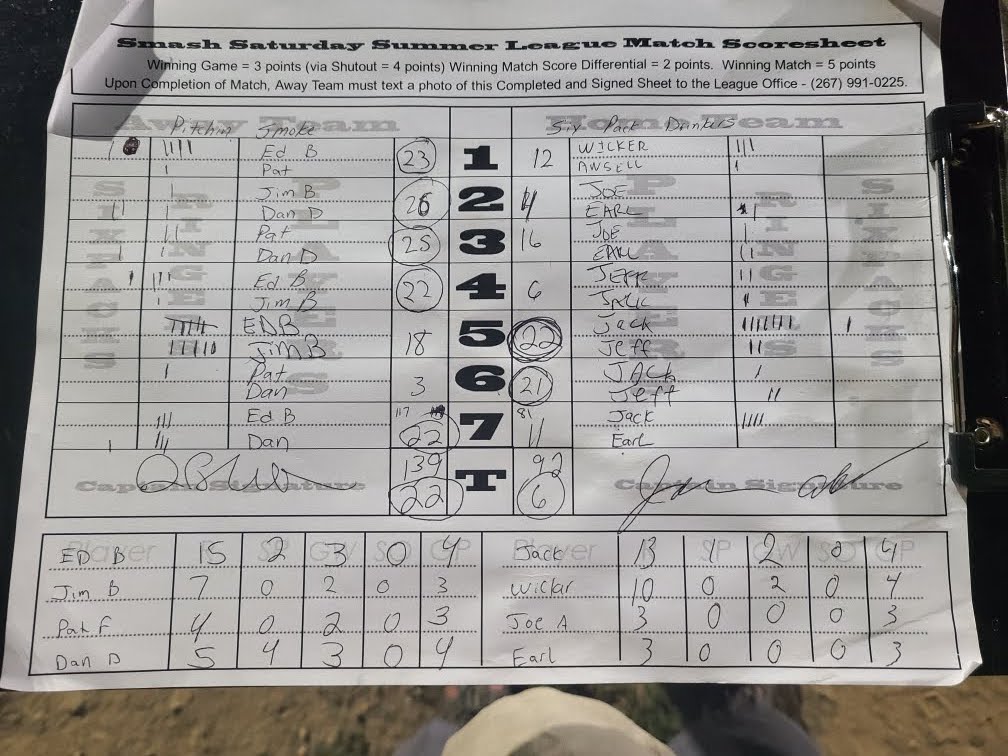 Smash Saturday Summer League Match Scoresheet
Winning Game = 3 points (via Shutout = 4 points) Winning Match Score Differential = 2 points. Winning Match = 5 points
Upon Completion of Match, Away Team must text a photo of this Completed and Signed Sheet to the League Office - (267) 991-0225.
Away Team Home Team
Pitchin Smoke Six Pack Drinkers
SIXPACKS RINGERS PLAYERS PLAYERS RINGERS SIXPACKS
Ed B 23 1 12 WICKER
Pat ANSELL
Jim B 26 2 4 JOE
Dan D EARL
Pat 25 3 16 JOE
Dan D EARL
Ed B 22 4 6 JEFF
Jim B JACK
EDB 18 5 22 Jack
Jim B Jeff
Pat 3 6 21 JACK
Dan Jeff
Ed B 117 7 81 Jack
Dan 22 11 Earl
139 T 92
Captain Signature 22 6 Captain Signature
Player R SP GW SO GP Player R SP GW SO GP
ED B 15 2 3 0 4 Jack 13 1 2 0 4
Jim B 7 0 2 0 3 Wickar 10 0 2 0 4
Pat F 4 0 2 0 3 Joe A 3 0 0 0 3
Dan D 5 4 3 0 4 Earl 3 0 0 0 3